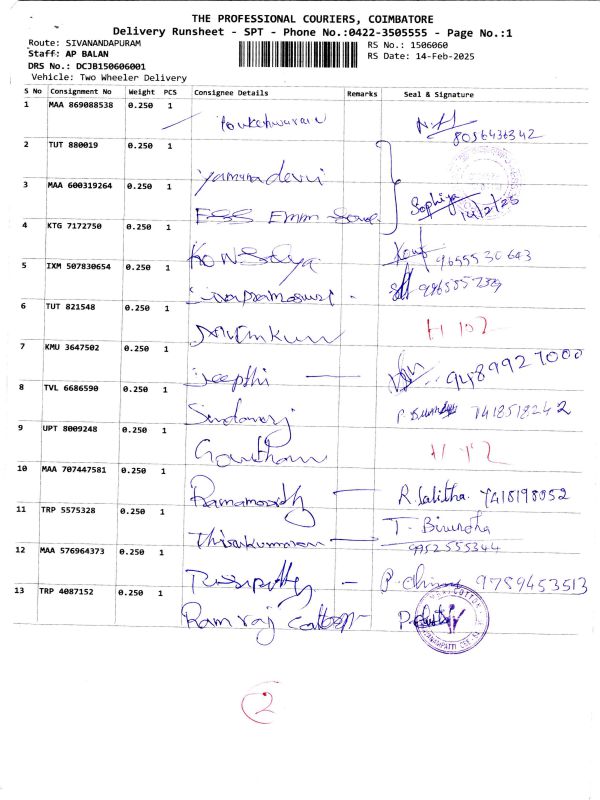 THE PROFESSIONAL COURIERS, COIMBATORE
Delivery Runsheet - SPT - Phone No.:0422-3505555 - Page No.:1
Route: SIVANANDAPURAM RS No.: 1506060
Staff: AP BALAN RS Date: 14-Feb-2025
DRS No.: DCJB150606001
Vehicle: Two Wheeler Delivery
S No Consignment No Weight PCS Consignee Details Remarks Seal & Signature
1 MAA 869088538 0.250 1
8056436342
2 TUT 880019 0.250 1
Yamuna devi
3 MAA 600319264 0.250 1
ESS Emm Sophiya 14/2/25
4 KTG 7172750 0.250 1
Kowsalya 9655530643
5 IXM 507830654 0.250 1
6 TUT 821548 0.250 1
7 KMU 3647502 0.250 1
Jeepthi 9489927000
8 TVL 6686590 0.250 1
Sundararj 7418518242
9 UPT 8009248 0.250 1
Goutham
10 MAA 707447581 0.250 1
Ramamoorthy R. Lalitha 7418198952
11 TRP 5575328 0.250 1
Thirukumaran T. Birundha
9952555344
12 MAA 576964373 0.250 1
P. 9789453513
13 TRP 4087152 0.250 1
Ramraj Cotton
2